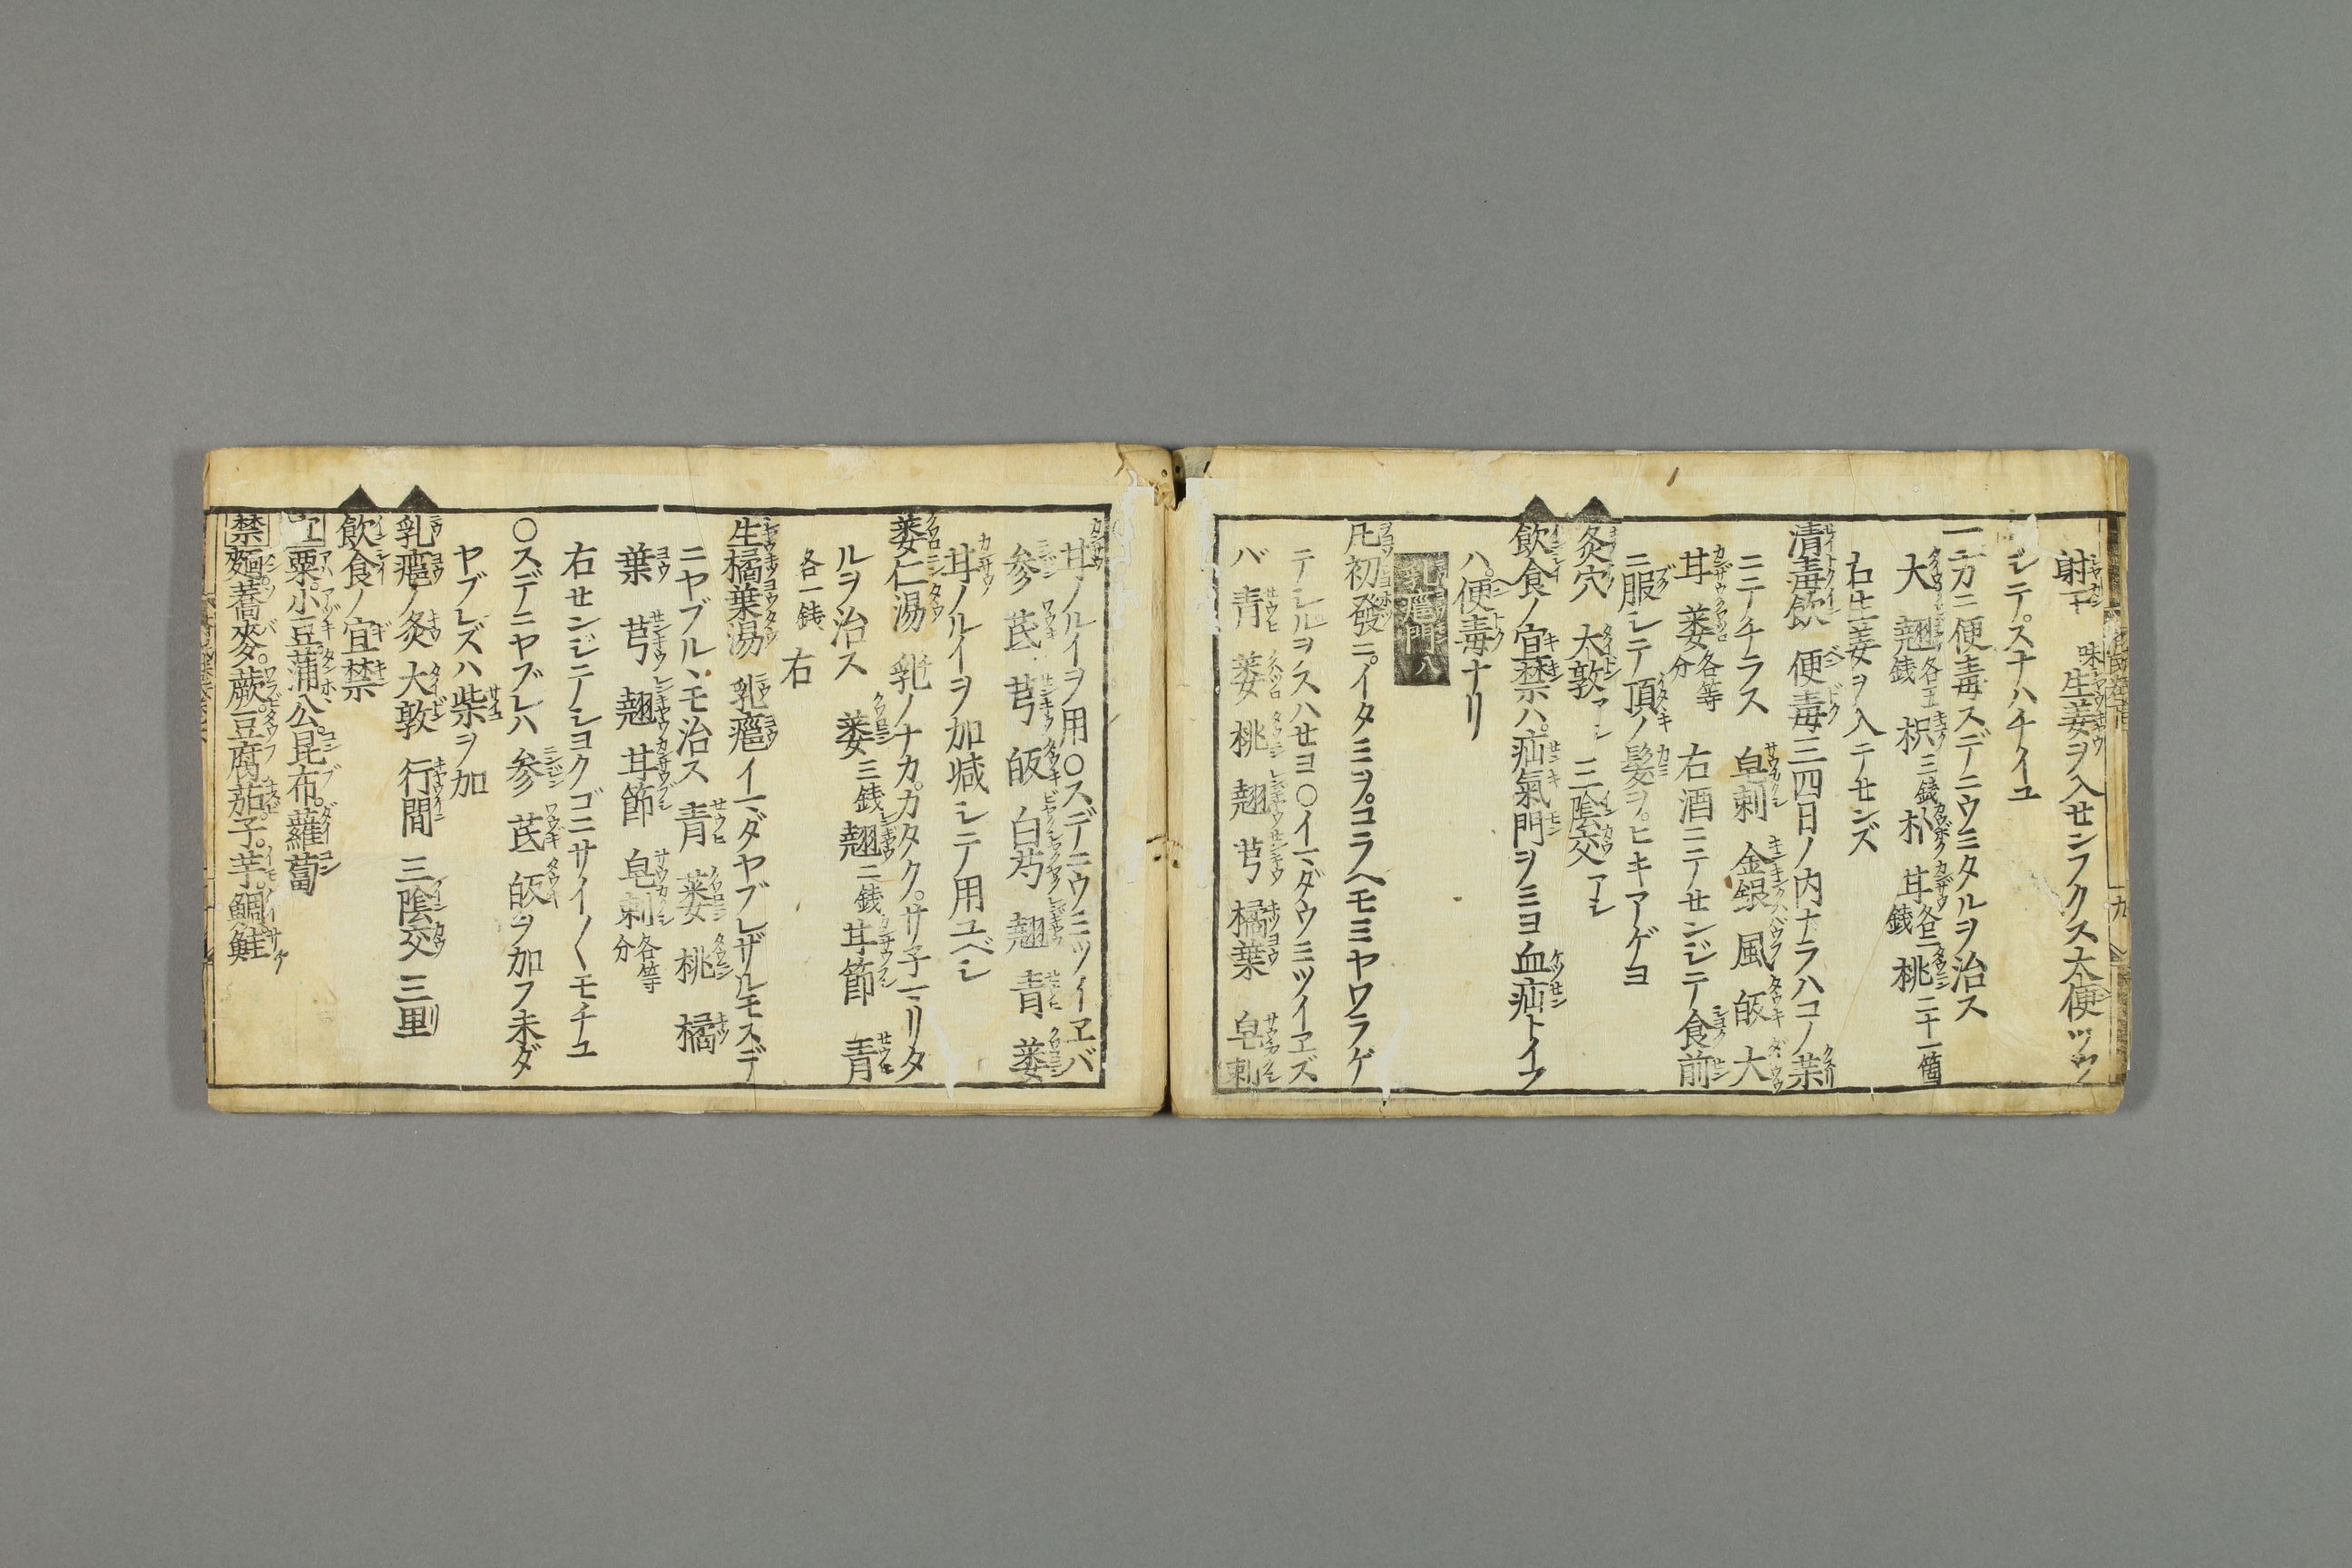 射干 味生姜ヲ入センフクス大便ツウ
シテスナハチイユ
一方ニ便毒スデニウミタルヲ治ス
大 翹各五銭 枳三銭 朴 甘各二銭 桃二十一箇
右生姜ヲ入テセンズ
清毒飲 便毒三四日ノ内ナラハコノ薬
ニテチラス 皂刺 金銀 風 皈 大
甘 蔞各等分 右酒ニテセンジテ食前
ニ服シテ頂ノ髪ヲ。ヒキアゲヨ
灸穴 大敦アシ 三陰交アシ
飲食ノ宜禁ハ。疝氣門ヲミヨ血疝トイフ
ハ。便毒ナリ
乳癰門 八
凡初發ニ。イタミヲ。コラヘモミヤワラゲ
テシルヲスハセヨ○イマダウミツイヱズ
バ 青 蔞 桃 翹 芎 橘葉 皂刺
甘ノルイヲ用○スデニウミツイヱバ
参 茋 芎 皈 白芍 翹 青 蔞
甘ノルイヲ加减シテ用ユベシ
蔞仁湯 乳ノナカ。カタク。サ子マリタ
ルヲ治ス 蔞三銭 翹二銭 甘節 青
各一銭 右
生橘葉湯 乳癰イマダヤブレザルモスデ
ニヤブルヽモ治ス 青 蔞 桃 橘
葉 芎 翹 甘節 皂刺各等分
右センジテシヨクゴニサイ〱モチユ
○スデニヤブレハ 参 茋 皈ヲ加フ未ダ
ヤブレズハ柴ヲ加
乳癰ノ灸 大敦 行間 三陰交 三里
飲食ノ宜禁
宜 粟。小豆。蒲公。昆布。蘿蔔
禁 麵。蕎麥。蕨。豆腐。茄子。芋。鯛。鮭